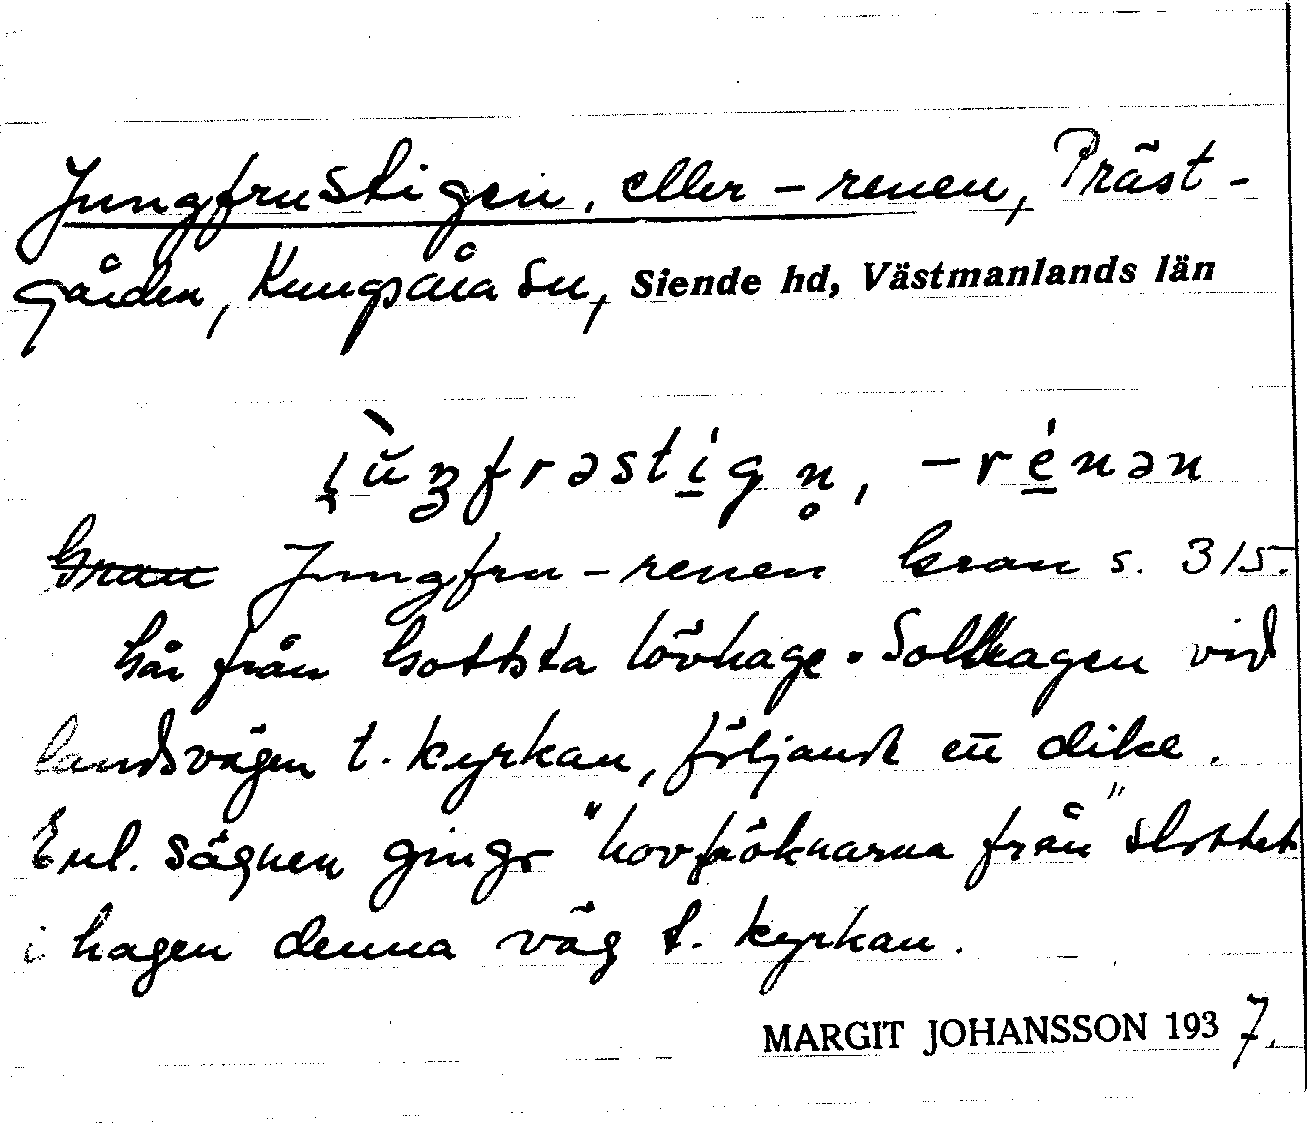 Jungfrustigen, eller -renen, Präst-
gården, Kungsåra sn, Siende hd, Västmanlands län
jùŋfrəstign̥, -rénən
Gran Jungfru-renen Gran s. 315.
Går från Gottsta lövhage. Sollhagen vid
landsvägen t. kyrkan, följande ett dike.
Enl. sägnen gingo "hovfröknarna från" slottet
i hagen denna väg t. kyrkan.
MARGIT JOHANSSON 1937.